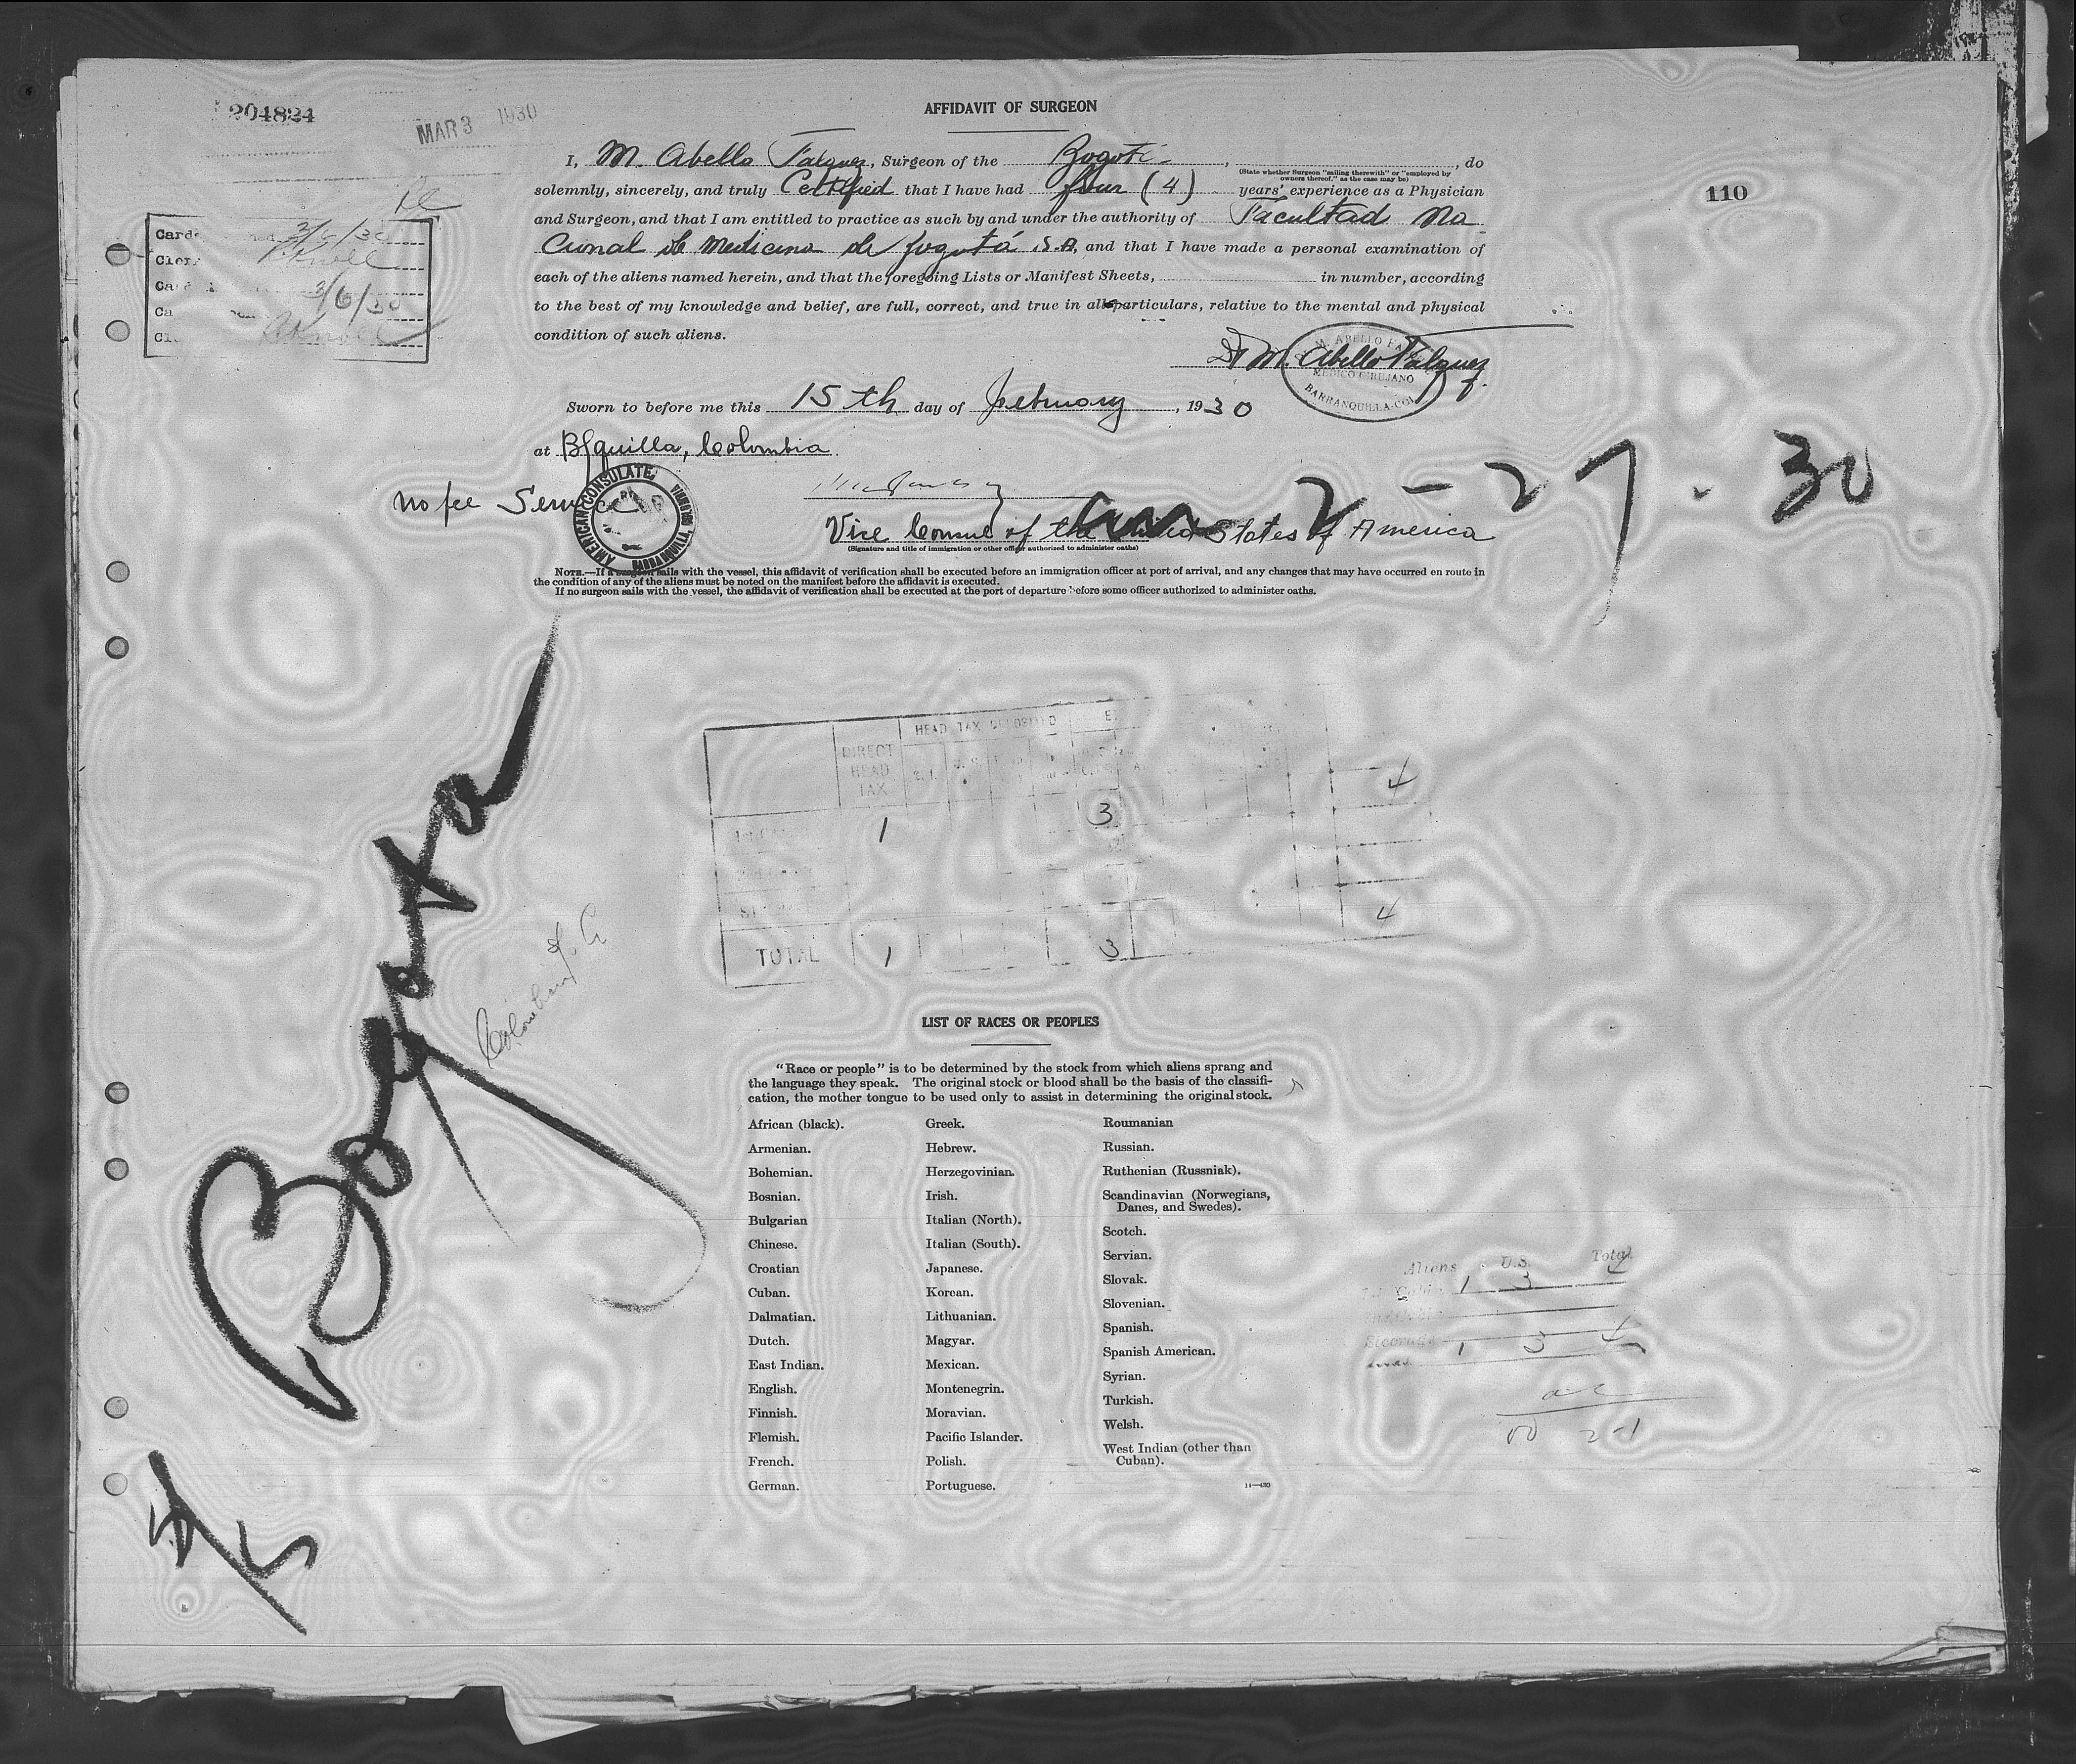 204824
MAR 3 1930
110
AFFIDAVIT OF SURGEON
I, M. Abello Falquez, Surgeon of the Bogotá, , do
(State whether Surgeon "sailing therewith" or "employed by
owners thereof," as the case may be)
solemnly, sincerely, and truly Certified that I have had four (4) years' experience as a Physician
and Surgeon, and that I am entitled to practice as such by and under the authority of Facultad Na
cional de Medicina de Bogotá S.A. and that I have made a personal examination of
each of the aliens named herein, and that the foregoing Lists or Manifest Sheets, in number, according
to the best of my knowledge and belief, are full, correct, and true in all particulars, relative to the mental and physical
condition of such aliens.
3/6/30
3/6/30
Dr M. Abello Falquez
M. ABELLO FA
MEDICO CIRUJANO
BARRANQUILLA-COL
Sworn to before me this 15th day of February, 1930
at B/quilla, Colombia
No fee Service
AMERICAN CONSULATE
BARRANQUILLA, COLOMBIA
2-27-30
Vice Consul of the United States of America
(Signature and title of immigration or other officer authorized to administer oaths)
NOTE.—If a surgeon sails with the vessel, this affidavit of verification shall be executed before an immigration officer at port of arrival, and any changes that may have occurred en route in
the condition of any of the aliens must be noted on the manifest before the affidavit is executed.
If no surgeon sails with the vessel, the affidavit of verification shall be executed at the port of departure before some officer authorized to administer oaths.
Bogota
HEAD TAX DEPOSITED
DIRECT
HEAD
TAX
1 3 4
TOTAL 1 3 4
LIST OF RACES OR PEOPLES
"Race or people" is to be determined by the stock from which aliens sprang and
the language they speak. The original stock or blood shall be the basis of the classifi-
cation, the mother tongue to be used only to assist in determining the original stock.
African (black).
Armenian.
Bohemian.
Bosnian.
Bulgarian
Chinese.
Croatian
Cuban.
Dalmatian.
Dutch.
East Indian.
English.
Finnish.
Flemish.
French.
German.
Greek.
Hebrew.
Herzegovinian.
Irish.
Italian (North).
Italian (South).
Japanese.
Korean.
Lithuanian.
Magyar.
Mexican.
Montenegrin.
Moravian.
Pacific Islander.
Polish.
Portuguese.
Roumanian
Russian.
Ruthenian (Russniak).
Scandinavian (Norwegians,
Danes, and Swedes).
Scotch.
Servian.
Slovak.
Slovenian.
Spanish.
Spanish American.
Syrian.
Turkish.
Welsh.
West Indian (other than
Cuban).
Aliens U.S. Total
1 3 4
Steerage
1 3 4
2-1